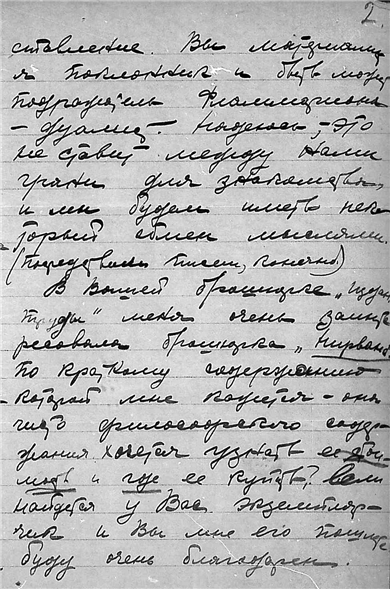 2.
ставление. Вы материалист
я поклонник и быть может
подражатель Фламмариона
– дуалист. Надеюсь, – это
не ставит между нами
грани для знакомства
и мы будем иметь неко
торый обмен мыслями
(посредством писем, конечно)
В Вашей брошюрке
труды" меня очень заинте
ресовала брошюрка „Нирвана"
По краткому содержанию
которой мне кажется – она
чисто философского содер
жания. Хочется узнать ее стои
мость и где ее купить? Если
найдется у Вас экземпляр
чик и Вы мне его пошлете
буду очень благодарен.